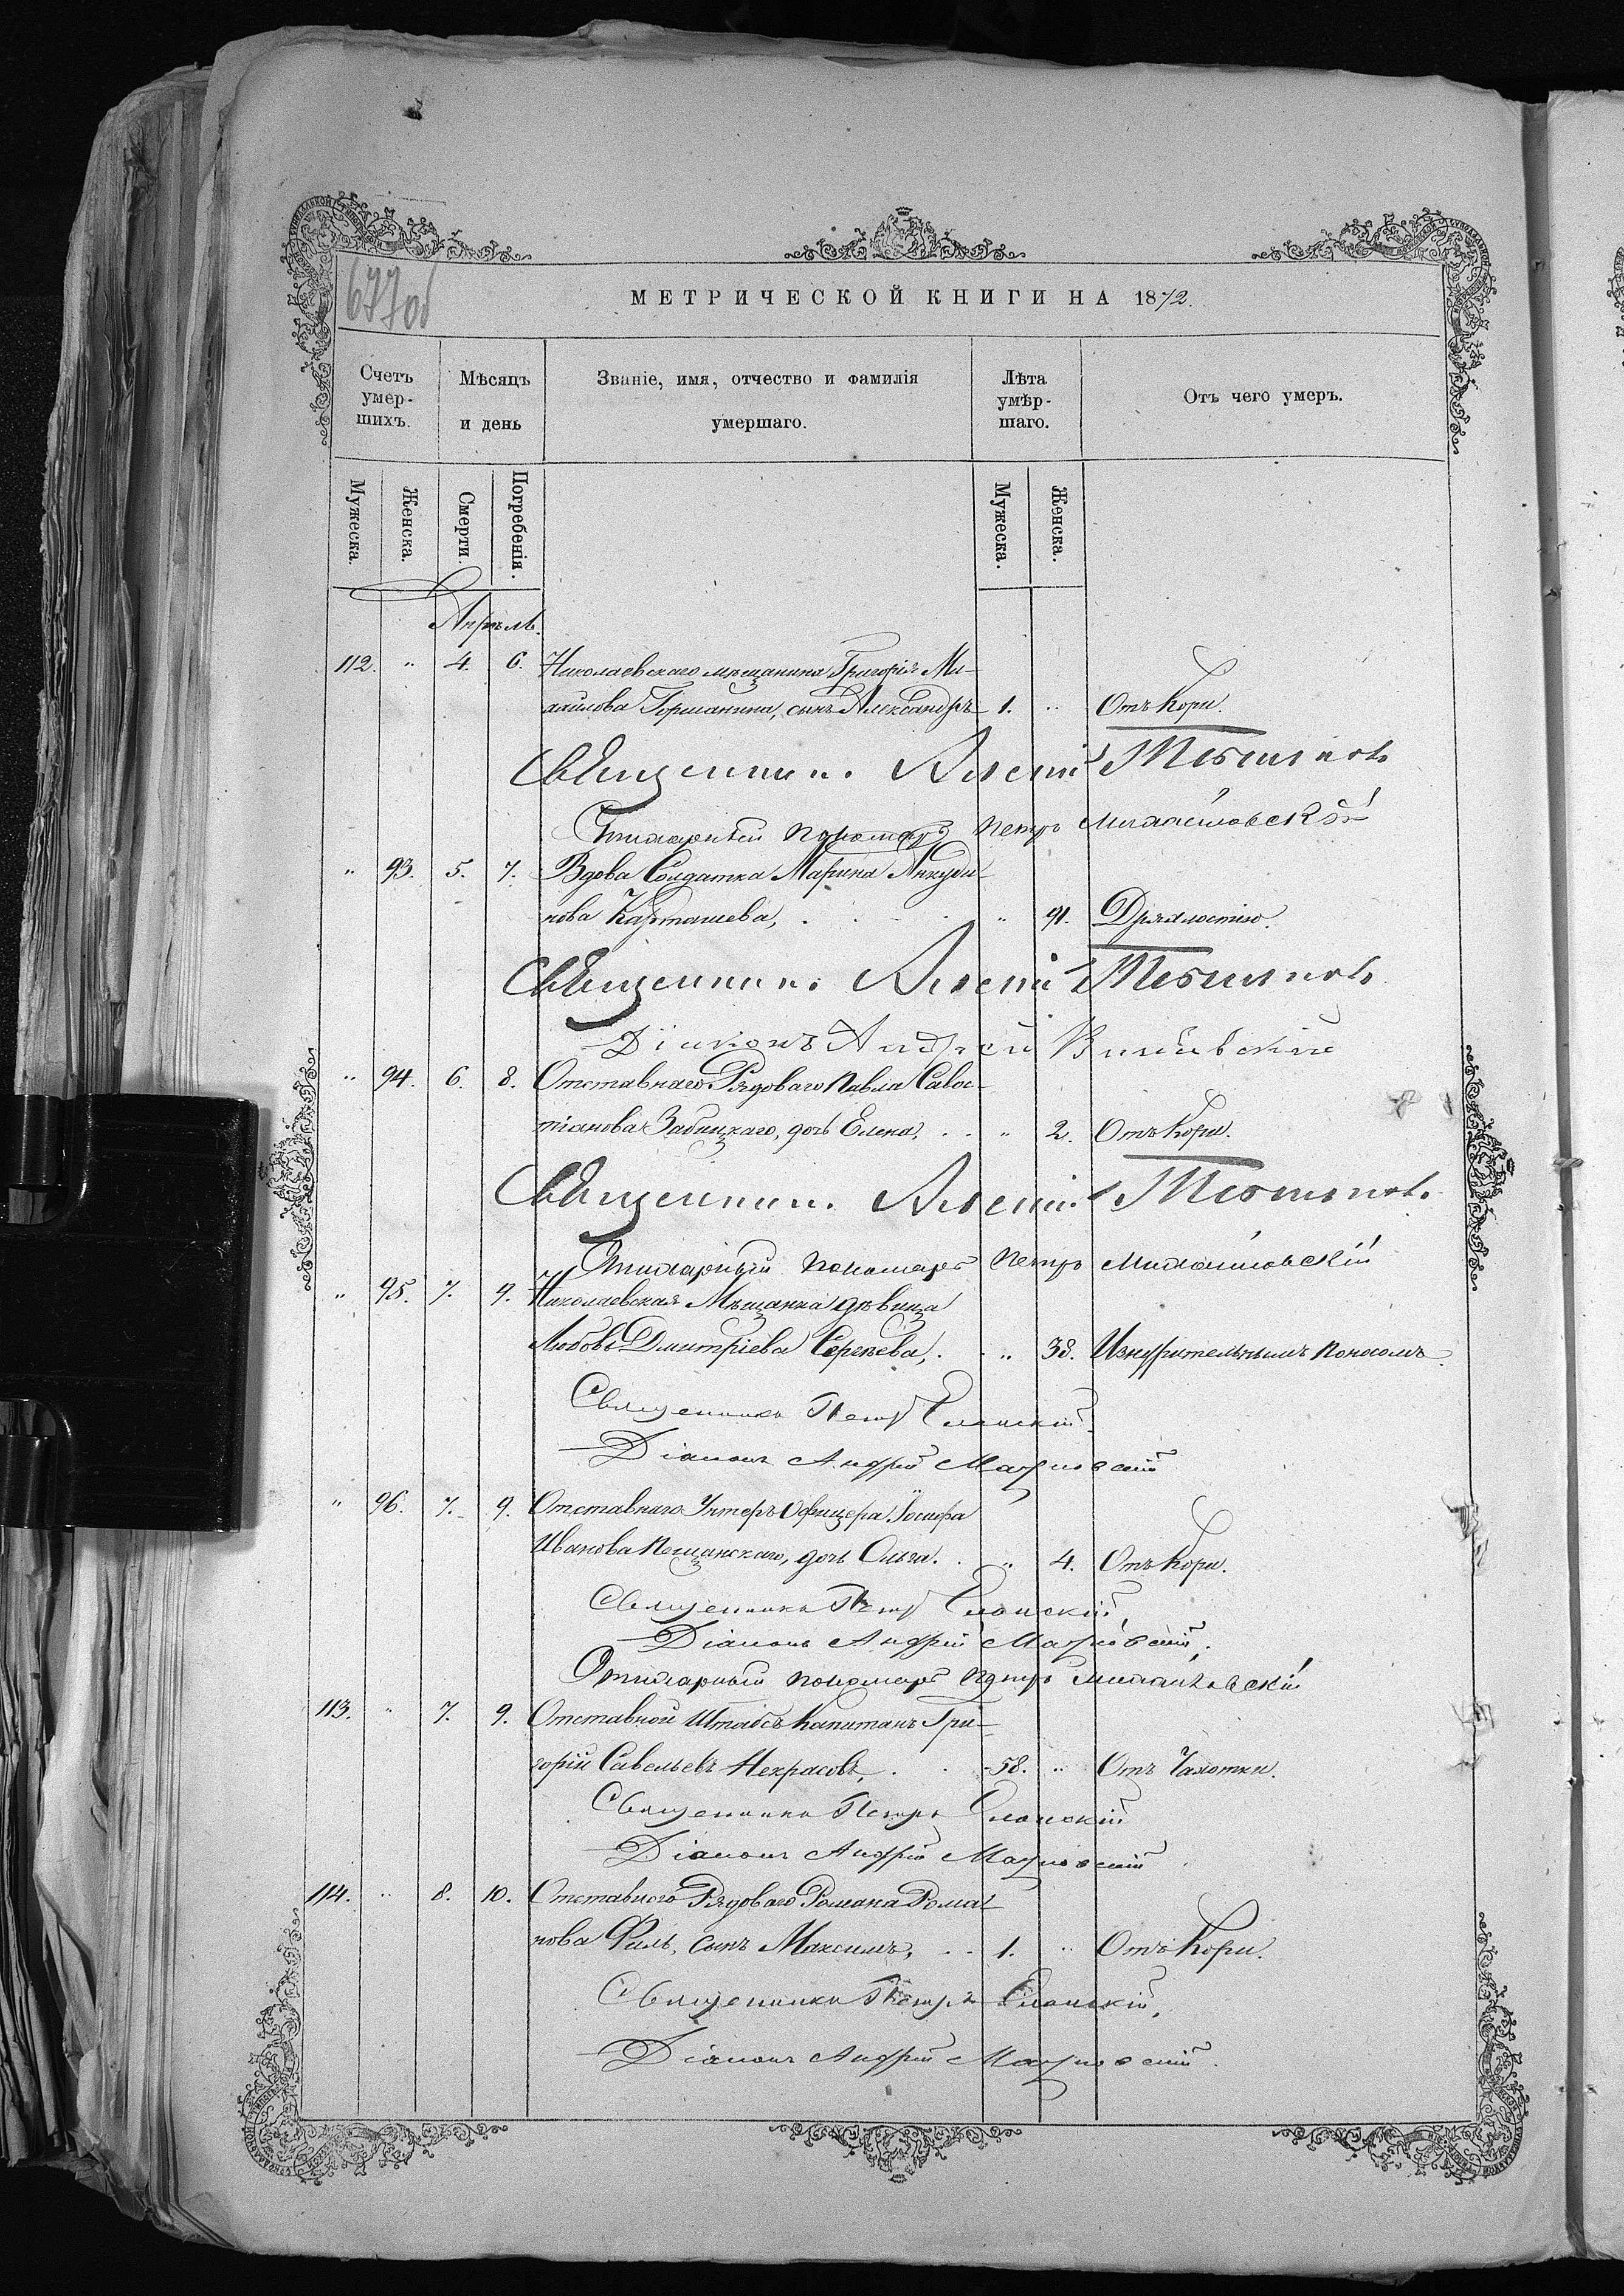 677об
МЕТРИЧЕСКОЙ КНИГИ НА 1872.
Счетъ умер- шихъ.
Мѣсяцъ и день
Званіе, имя, отчество и фамилія умершаго.
Лѣта умѣр- шаго.
Отъ чего умеръ.
Мужеска. Женска. Смерти. Погребенія. Мужеска. Женска.
Апрѣль.
112. " 4. 6. Николаевскаго мѣщанина Григорія Ми-
хаилова Германина, сынъ Александръ 1. " Отъ Кори.
Священникъ Алексій
Пономарь Петръ
" 93. 5. 7. Вдова Солдатка Марина Анкуди-
нова Карташева, " 91. Дряхлостію.
Священникъ Алексій
Діаконъ Андрей
" 94. 6. 8. Отставнаго Рядоваго Павла Савос-
тіанова Забицкаго, дочь Елена, " 2. Отъ Кори.
Священникъ Алексій
пономарь Петръ
" 95. 7. 9. Николаевская Мѣщанка дѣвица
Любовь Дмитріева Сергѣева, " 38. Изнурительнымъ поносомъ.
Священникъ Петръ Еланскій
Діаконъ Андрей
" 96. 7. 9. Отставнаго Унтеръ Офицера Іосифа
Иванова Пещанскаго, дочь Ольги. " 4. Отъ Кори.
Священникъ Петръ Еланскій,
Діаконъ Андрей
пономарь Петръ
113. " 7. 9. Отставной Штабсъ Капитанъ Гри-
горій Савельевъ Некрасовъ, 58. " Отъ Чахотки.
Священникъ Петръ Еланскій
Діаконъ Андрей
114. " 8. 10. Отставного Рядоваго Романа Рома-
нова Филь, сынъ Максимъ, 1. " Отъ Кори.
Священникъ Петръ Еланскій,
Діаконъ Андрей